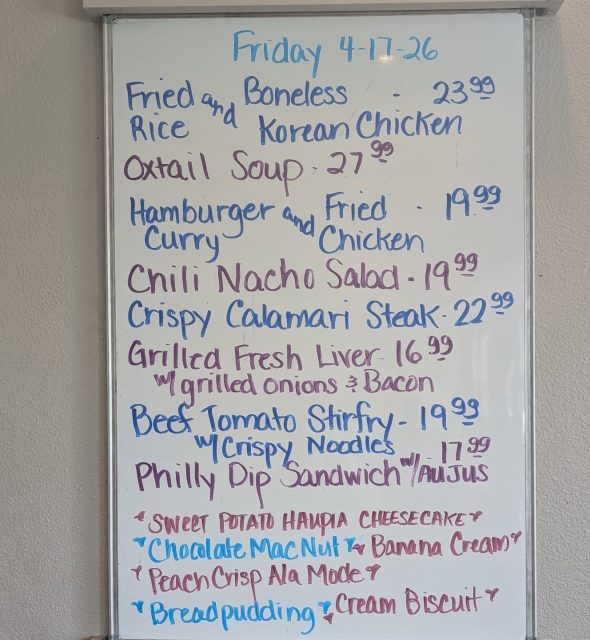 Friday 4-17-26
Fried and Boneless - 23.99
Rice Korean Chicken
Oxtail Soup - 27.99
Hamburger and Fried - 19.99
Curry Chicken
Chili Nacho Salad - 19.99
Crispy Calamari Steak - 22.99
Grilled Fresh Liver - 16.99
w/ grilled onions & Bacon
Beef Tomato Stirfry - 19.99
w/ Crispy Noodles
Philly Dip Sandwich w/ AuJus - 17.99
SWEET POTATO HAUPIA CHEESECAKE
Chocolate Mac Nut Banana Cream
Peach Crisp Ala Mode
Breadpudding Cream Biscuit